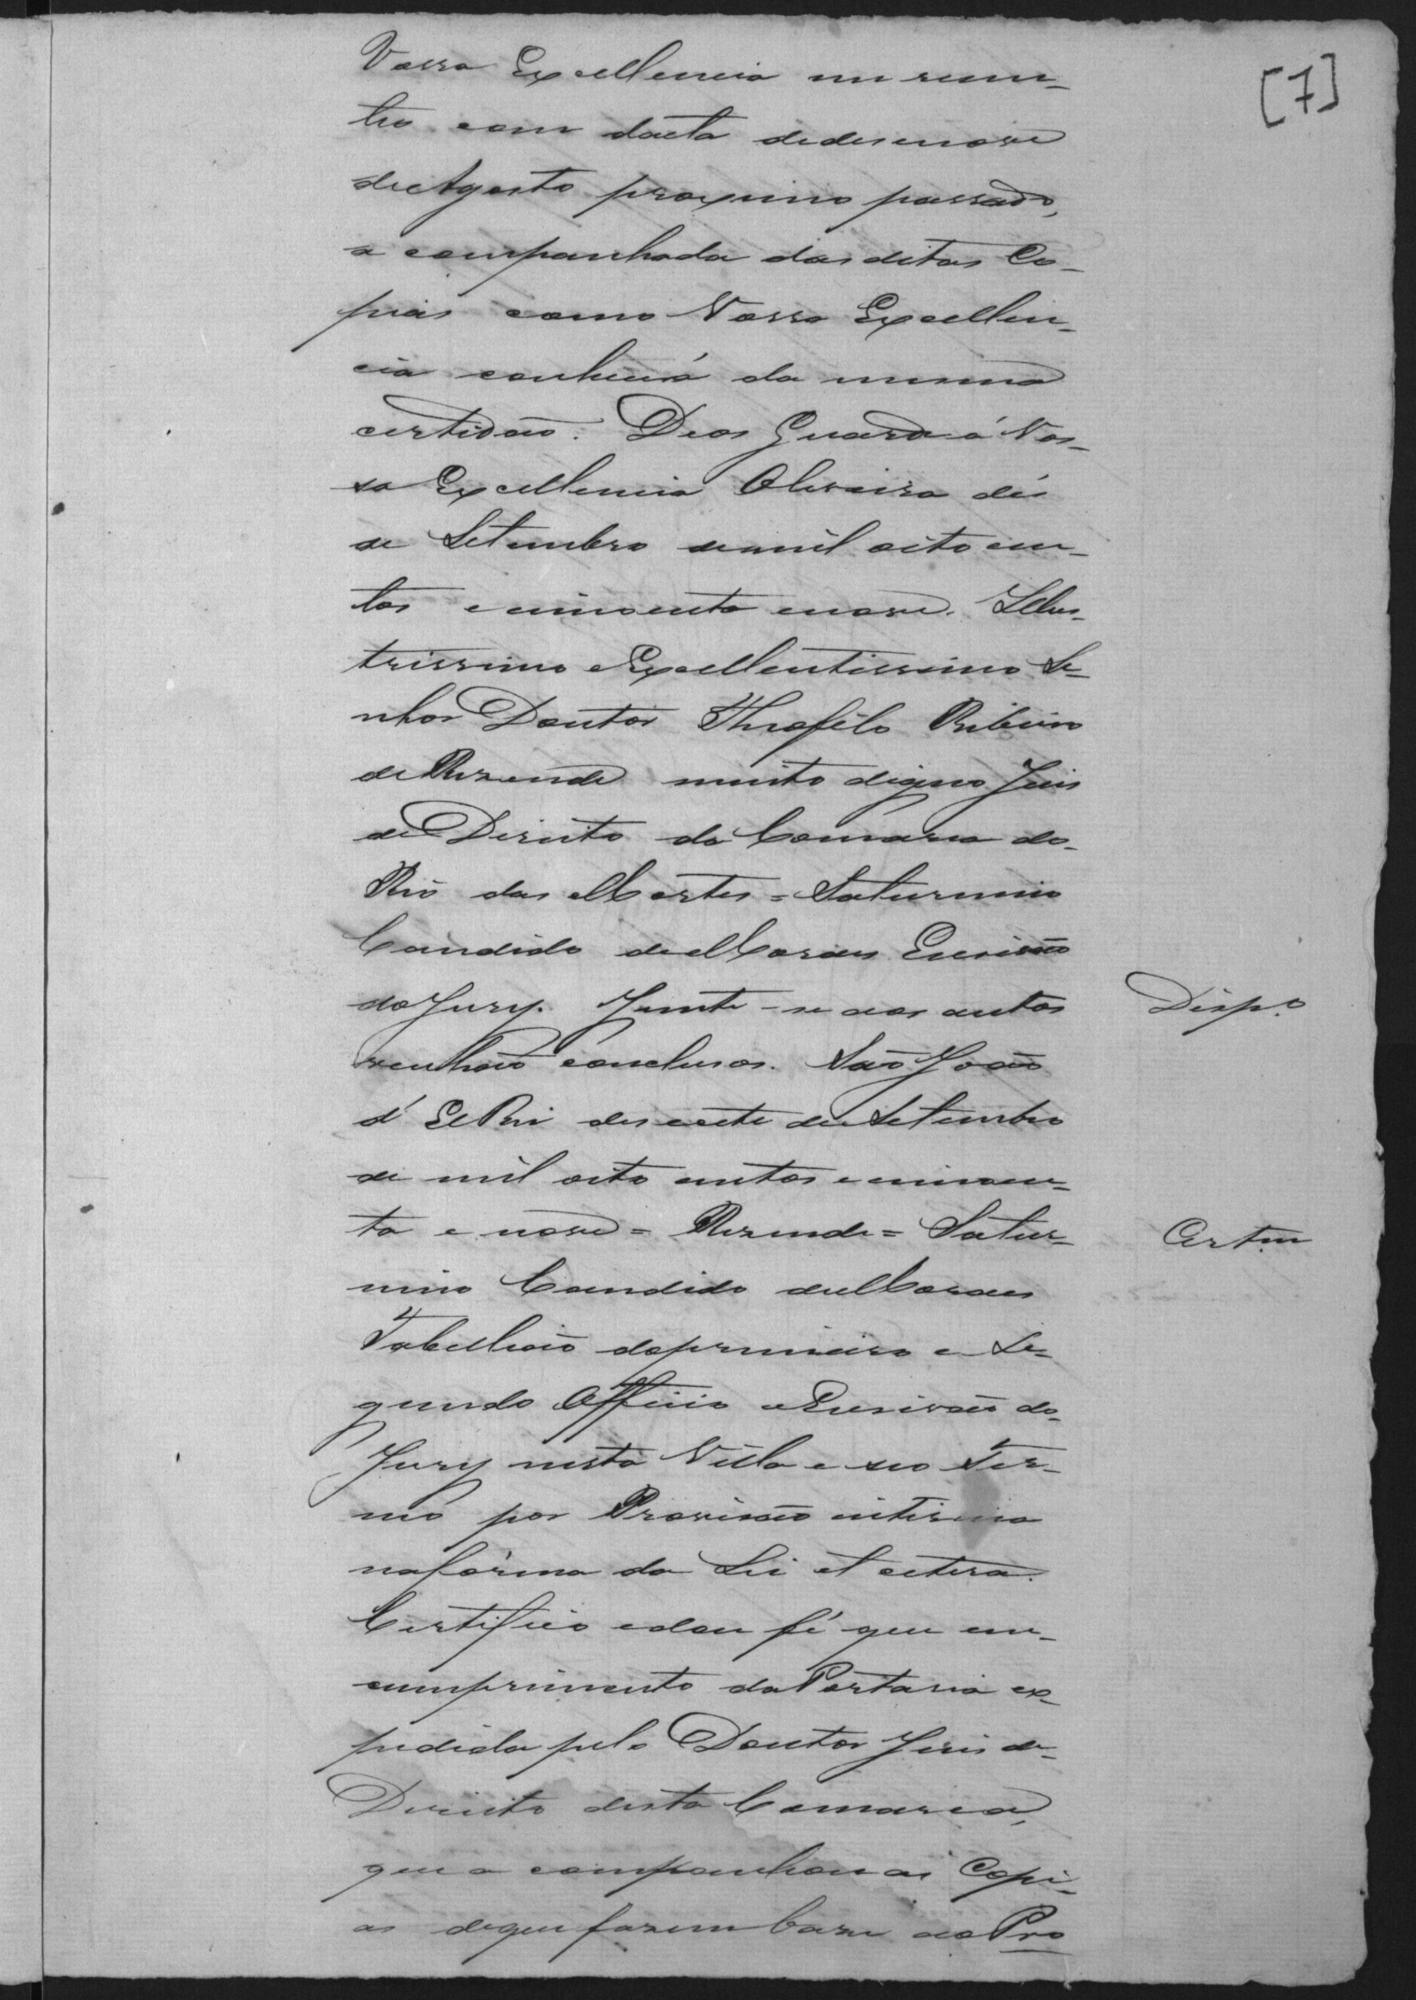 [7]
Vossa Excellencia um rem-
tio com dacta dedesenove
deAgosto proximo passado,
a companhada das ditas Co-
pias como Vossa Excellen-
cia conhecerá da mesma
certidaõ. Deos Guarde á Vos-
sa Excellencia Oliveira dés
de Setembro demil oito cen-
tos e cincoenta enove. Illus-
trissimo eExcellentissimo Se-
nhor Doutor Theofilo Ribeiro
deRezende muito digno Juis
deDireito da Comarca do
Rio das Mortes = Saturnino
Candido deMoraes Escrivaõ
doJury. Junte-se aos autos
venhaõ conclusos. Saõ Joaõ
d'ElRei desesete deSetembro
de mil oito centos e cincoen-
ta e nove = Rezende = Satur-
nino Candido deMoraes
Tabelliaõ doprimeiro e Se-
gundo Officio eEscrivaõ do
Jury nesta Villa e seo Ter-
mo por Provisaõ interina
nafórma da Lei et cetera.
Certifico edou fé que em
cumprimento daPortaria ex-
pedida pelo Doutor Juis de
Direito desta Comarca,
que a companhou as Copi-
as dequefazem baze aoPro
Desp.º
Cert.am